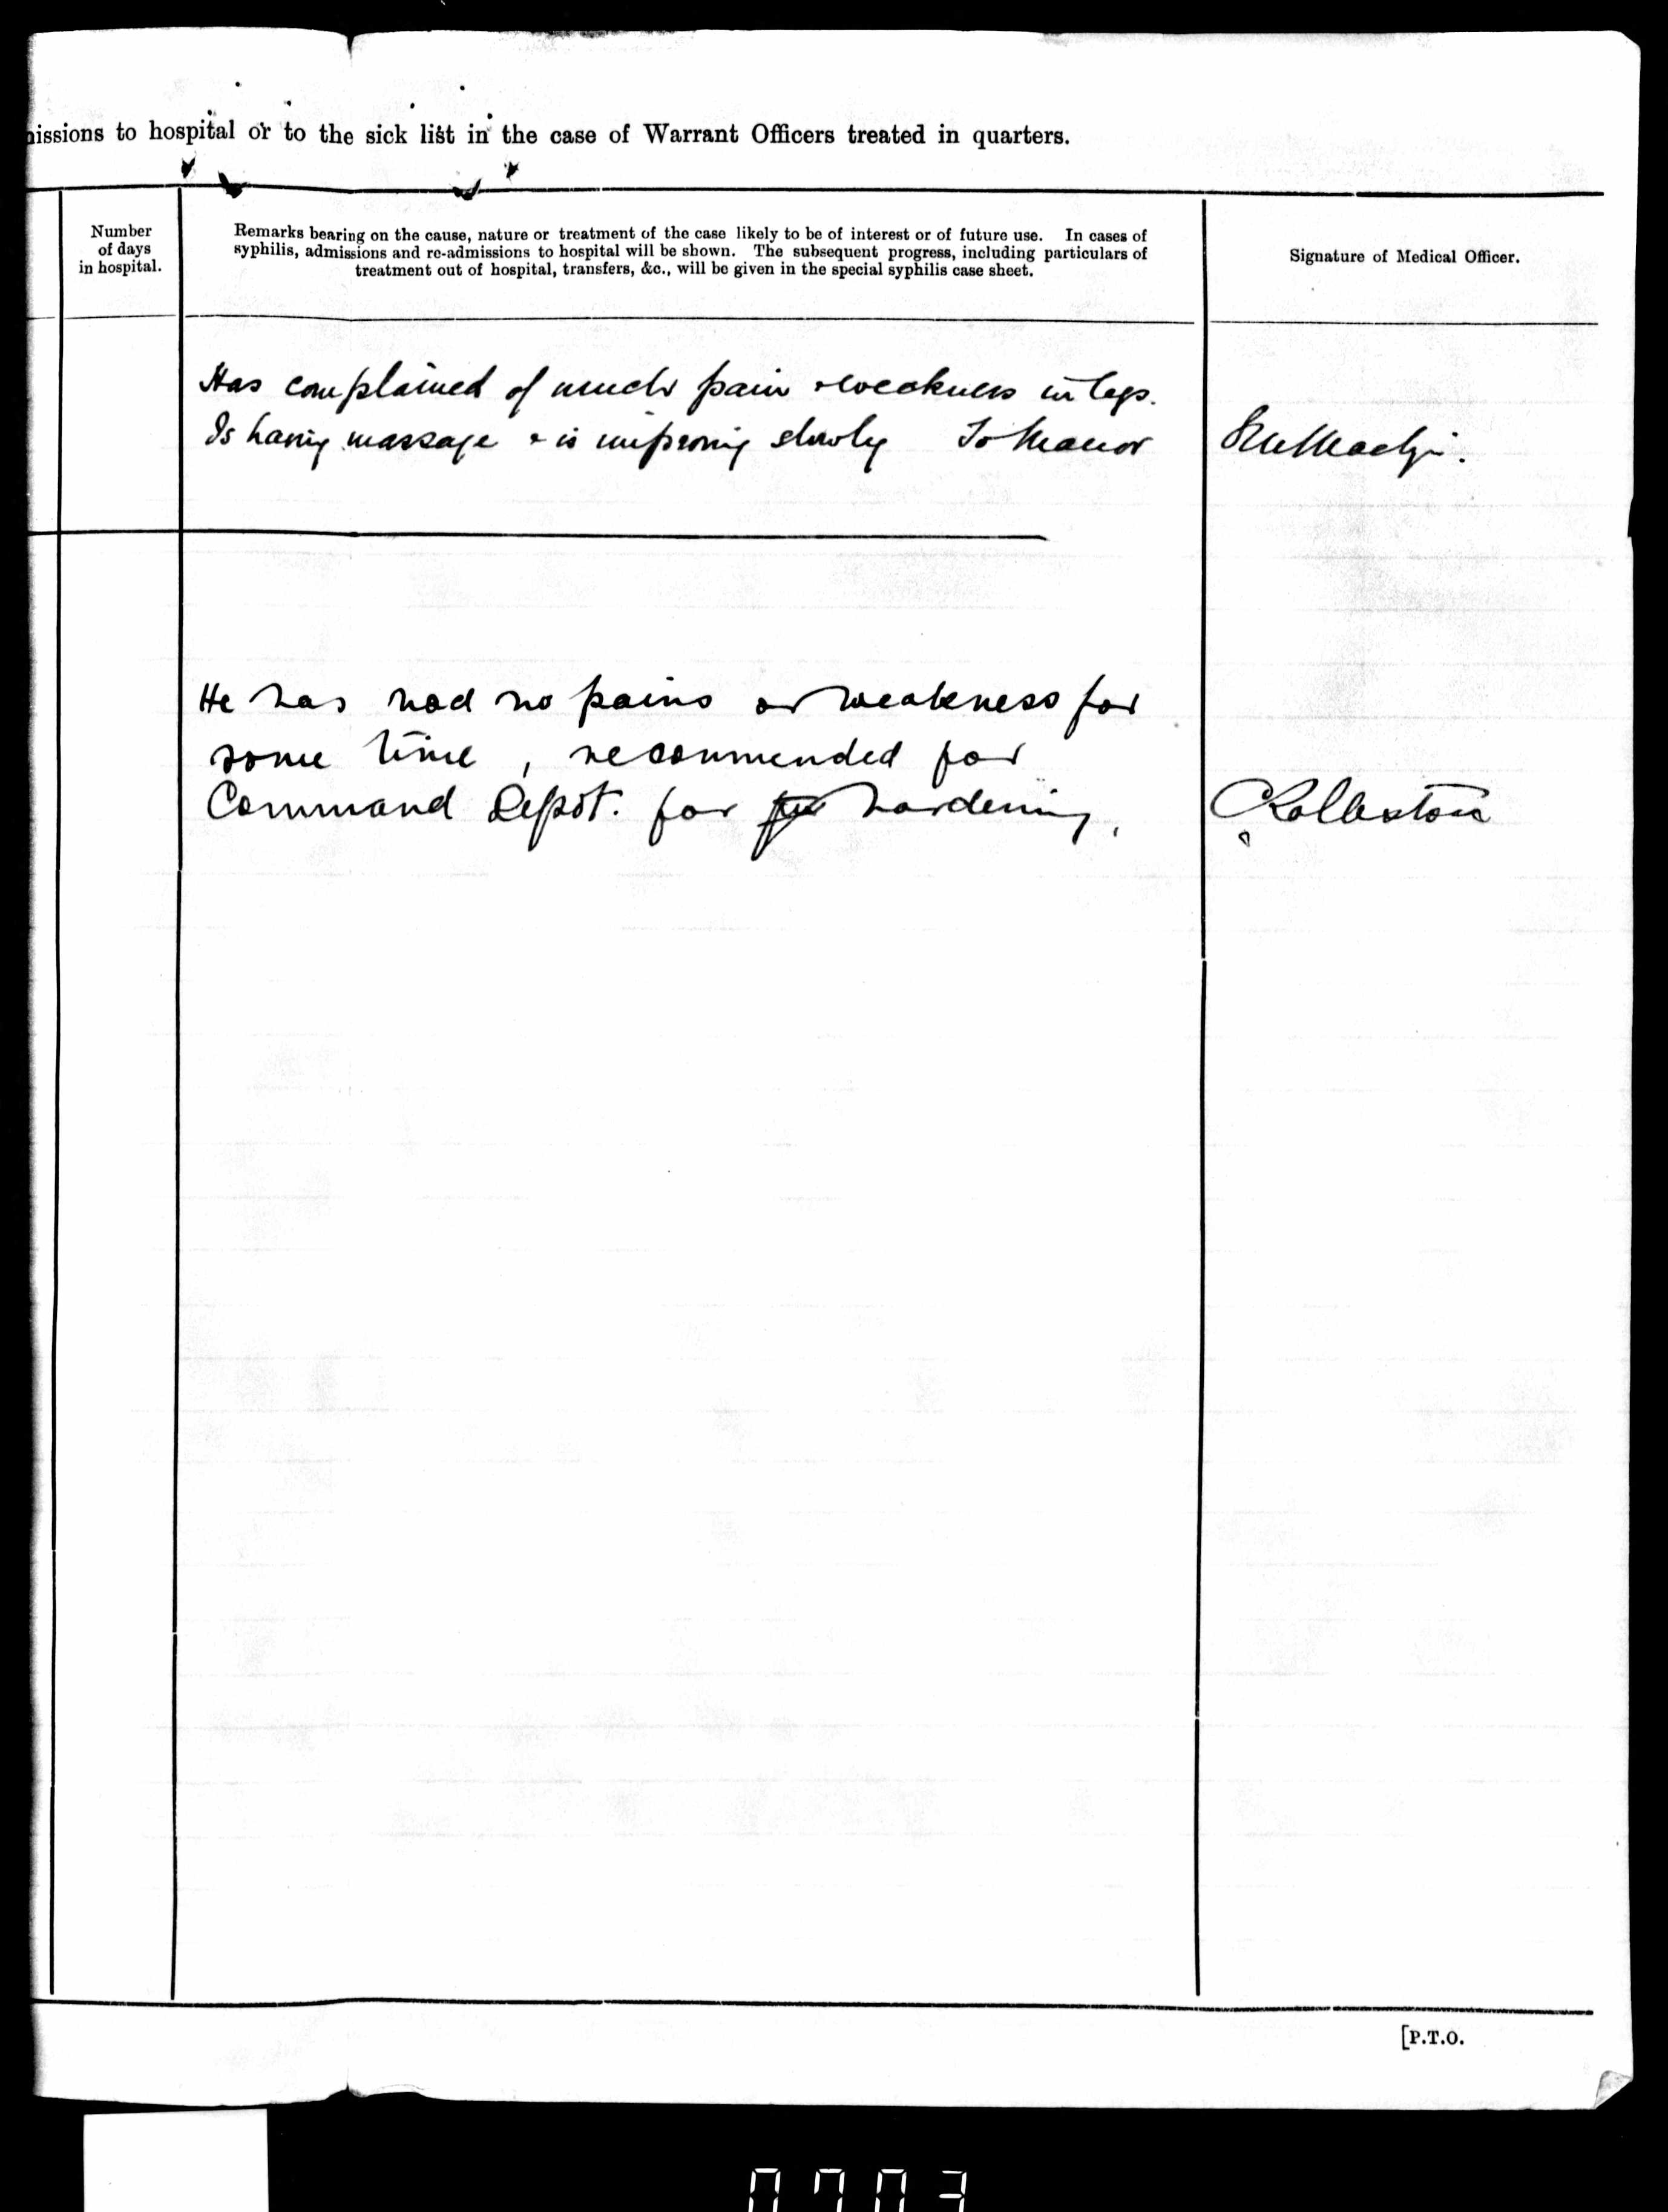 issions to hospital or to the sick list in the case of Warrant Officers treated in quarters.
Number
of days
in hospital.
Remarks bearing on the cause, nature or treatment of the case likely to be of interest or of future use. In cases of
syphilis, admissions and re-admissions to hospital will be shown. The subsequent progress, including particulars of
treatment out of hospital, transfers, &c., will be given in the special syphilis case sheet.
Signature of Medical Officer.
Has complained of much pain & weakness in legs.
Is having massage & is improving slowly To Manor
He has had no pains or weakness for
some time, recommended for
Command Depot. for hardening,
CRolleston
[P.T.O.
0703